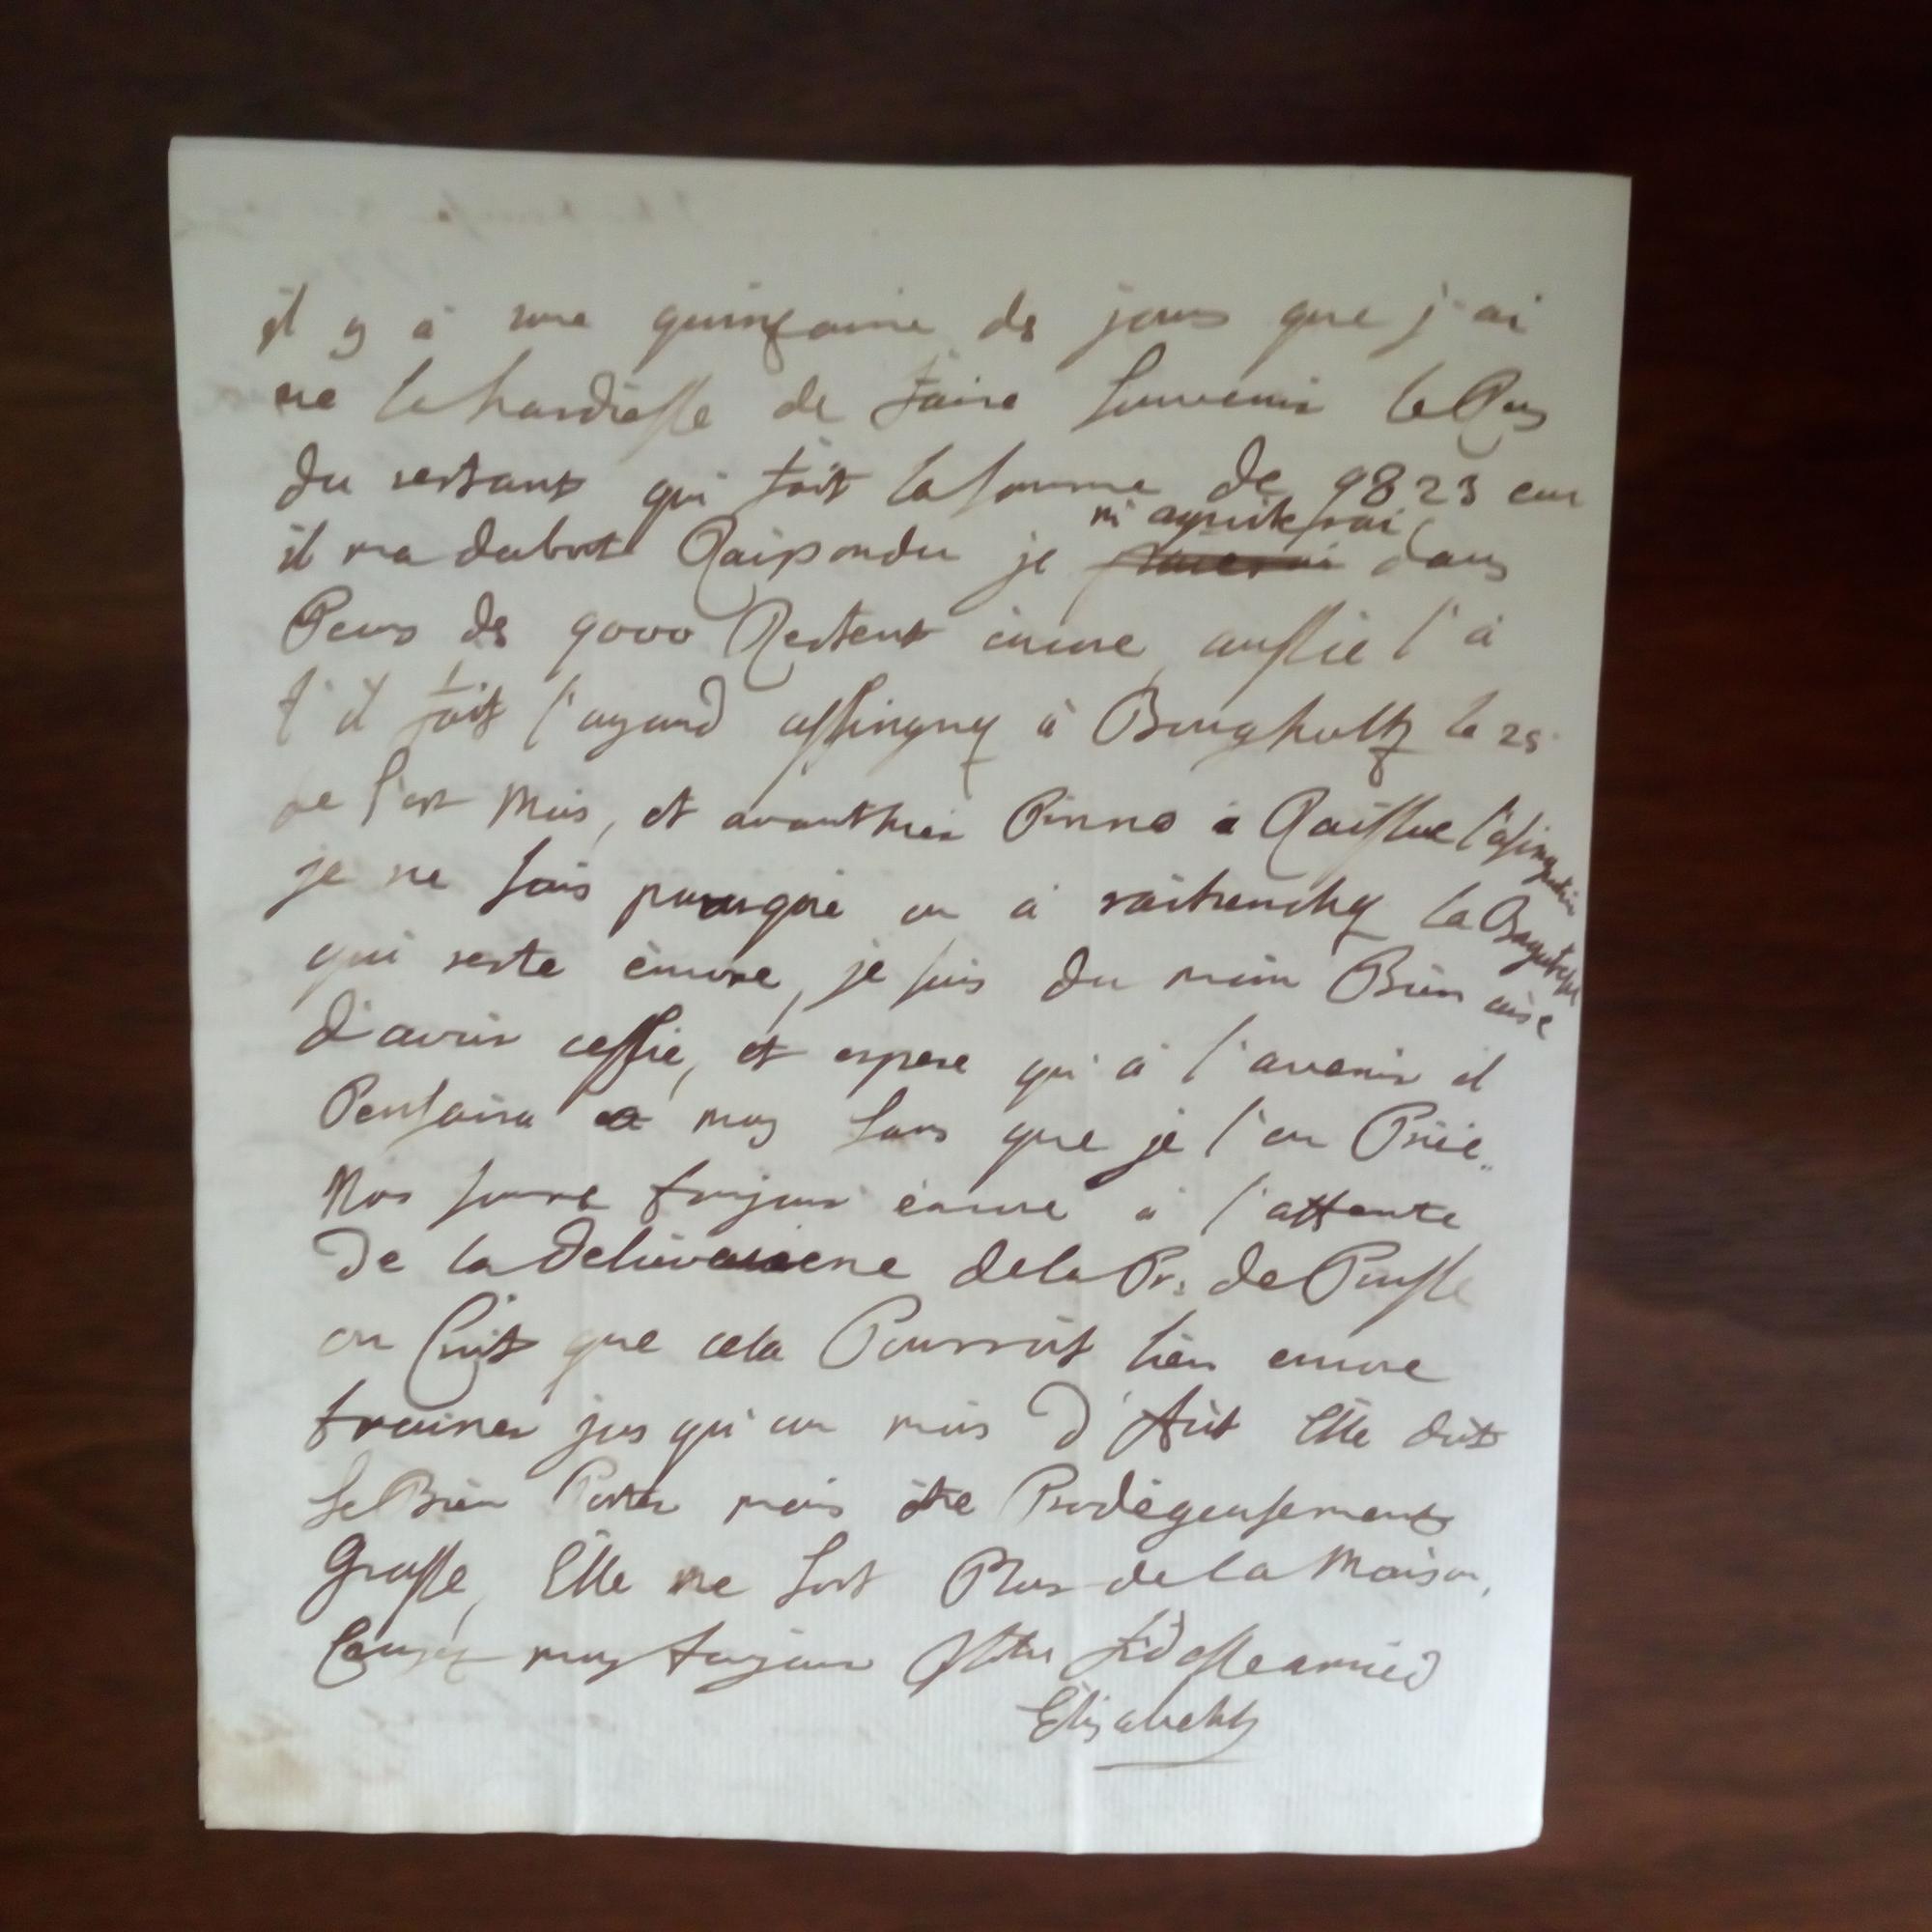 il y à une quinzaine de jours que j'ai
ue la hardiesse de faire souvenir le Roy
du restant qui fait la somme de 9823 ecu
il ma dabort Raiponder je m'aquiterai dans
Peux de 9000 Restent encore, aussie l'à
t'il fait l'ayand assingnez à Burghultz le 25
de cest Mois, et avanthier Pinno à Raissue l'assingnation
je ne sais pourquoi on à raitrenchez la Bagatelle
qui reste encore, je suis du moin Bien aise
d'avoir cessie, et espere qu'à l'avenir il
Pensaira a moy sans que je l'en Priée.
Nos somme toujour encore à l'attente
De la delivrance de la Pr: de Prusse
on Croit que cela Pourroit bien encore
trainer jusqu'au mois d'Aût Elle doit
se Bien Porter mais être Prodégeusement
Grosse, Elle ne sort Plus de la Maison,
Croyez moy toujour Votre fidelle amie
Elisabeth